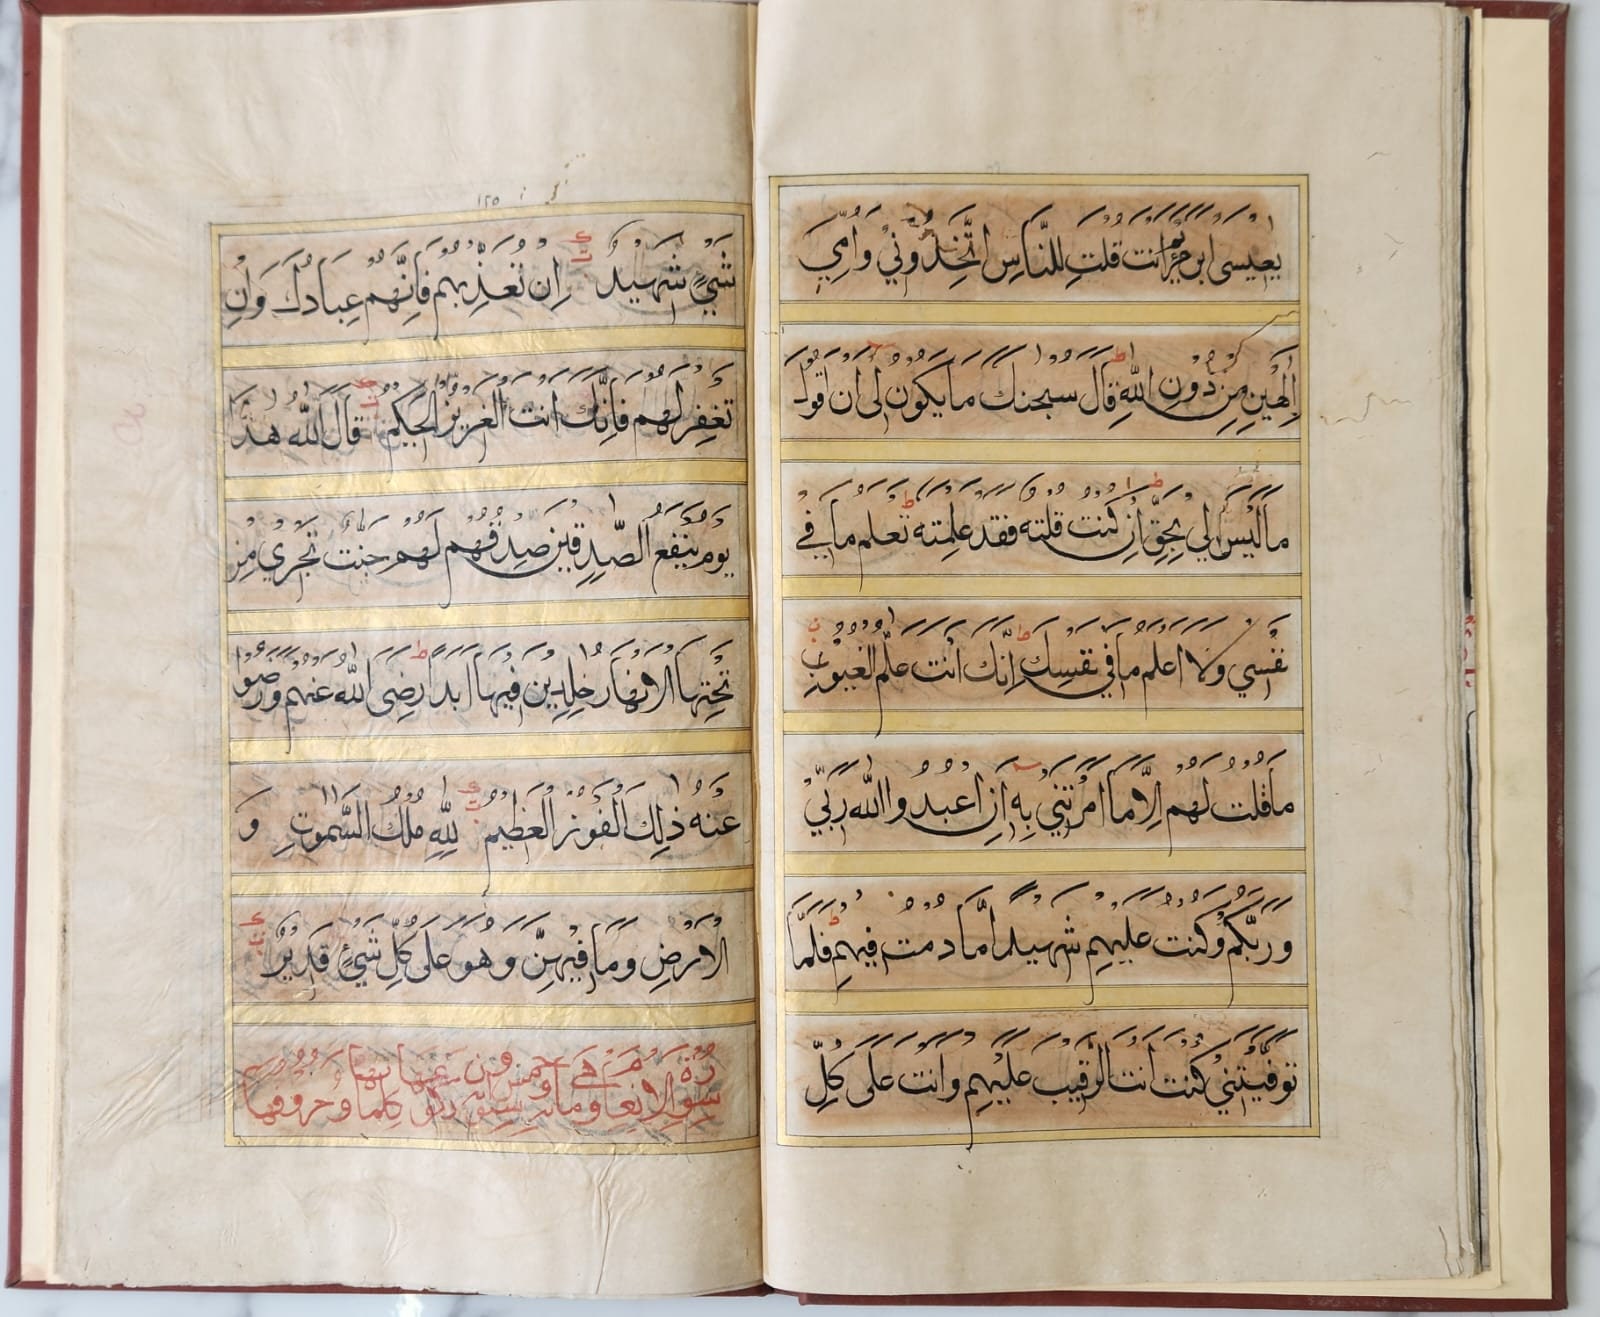 يعيسى ابن مريم ءانت قلت للناس اتخذوني وامي
الهين من دون الله قال سبحنك ما يكون لى ان اقول
ما ليس لي بحق ان كنت قلته فقد علمته تعلم ما في
نفسي ولا اعلم ما في نفسك انك انت علم الغيوب
ما قلت لهم الا ما امرتني به ان اعبدوا الله ربي
وربكم وكنت عليهم شهيدا ما دمت فيهم فلما
توفيتني كنت انت الرقيب عليهم وانت على كل
١٢٥
شيء شهيد ان تعذبهم فانهم عبادك وان
تغفر لهم فانك انت العزيز الحكيم قال الله هذا
يوم ينفع الصدقين صدقهم لهم جنت تجري من
تحتها الانهار خلدين فيها ابدا رضى الله عنهم ورضوا
عنه ذلك الفوز العظيم لله ملك السموت و
الارض وما فيهن وهو على كل شيء قدير
سورة الانعام